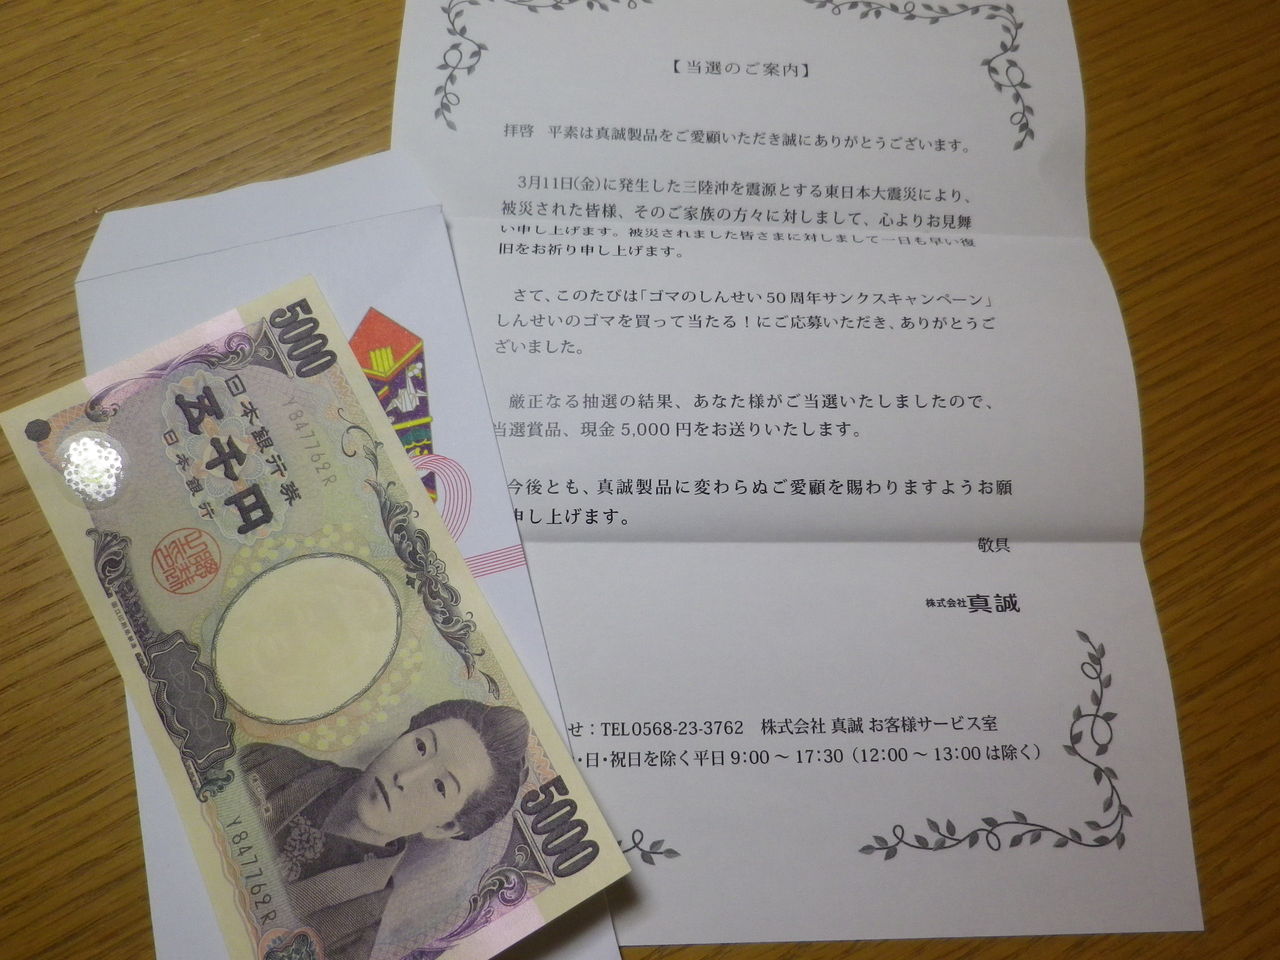 【当選のご案内】
拝啓 平素は真誠製品をご愛顧いただき誠にありがとうございます。
3月11日(金)に発生した三陸沖を震源とする東日本大震災により、
被災された皆様、そのご家族の方々に対しまして、心よりお見舞
い申し上げます。被災されました皆さまに対しまして一日も早い復
旧をお祈り申し上げます。
さて、このたびは「ゴマのしんせい50周年サンクスキャンペーン」
しんせいのゴマを買って当たる!にご応募いただき、ありがとうご
ざいました。
厳正なる抽選の結果、あなた様がご当選いたしましたので、
当選賞品、現金5,000円をお送りいたします。
今後とも、真誠製品に変わらぬご愛顧を賜わりますようお願
申し上げます。
敬具
株式会社 真誠
せ:TEL0568-23-3762 株式会社 真誠 お客様サービス室
・日・祝日を除く平日9:00～17:30(12:00～13:00は除く)
5000
日本銀行券
Y847762R
五千円
日本銀行
5000
Y847762R